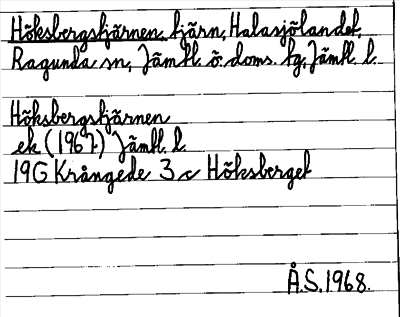 Höksbergstjärnen, tjärn, Halasjölandet,
Ragunda sn, Jämtl. ö. doms. tg, Jämtl. l.
Höksbergstjärnen
ek (1967) Jämtl. l.
19G Krångede 3 c Höksberget
Å.S. 1968.